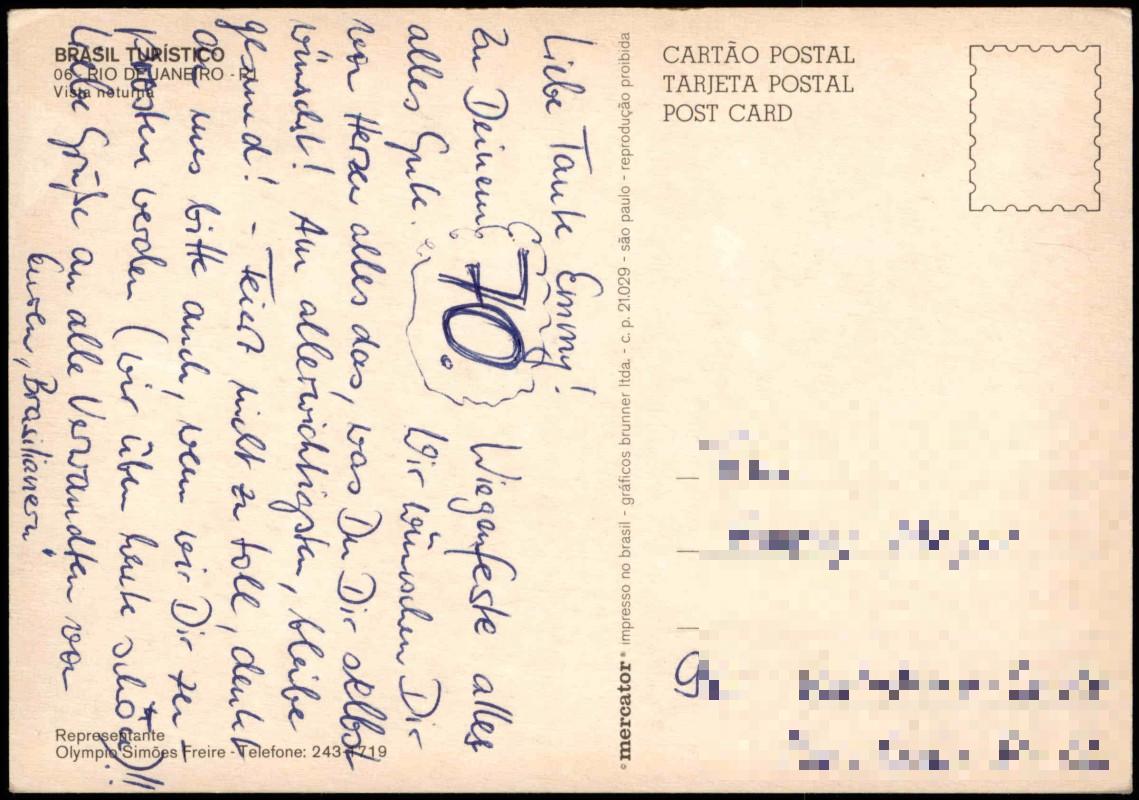 BRASIL TURÍSTICO
06 - RIO DE JANEIRO - RJ
Vista noturna
Liebe Tante Emmy!
Zu Deinem 70. Wiegenfeste alles
alles Gute. Wir wünschen Dir
von Herzen alles das, was Du Dir selbst
wünschst! Am allerwichtigsten, bleibe
gesund! - Feiert nicht zu toll, denkt
an uns bitte auch, wenn wir Dir zu-
prosten werden (wir üben heute schon)!!
Liebe Grüße an alle Verwandten von
Euren, Brasilianern"
Representante
Olympio Simões Freire - Telefone: 243-1719
©mercator® impresso no brasil - gráficos brunner ltda. - c. p. 21.029 - são paulo - reprodução proibida
CARTÃO POSTAL
TARJETA POSTAL
POST CARD